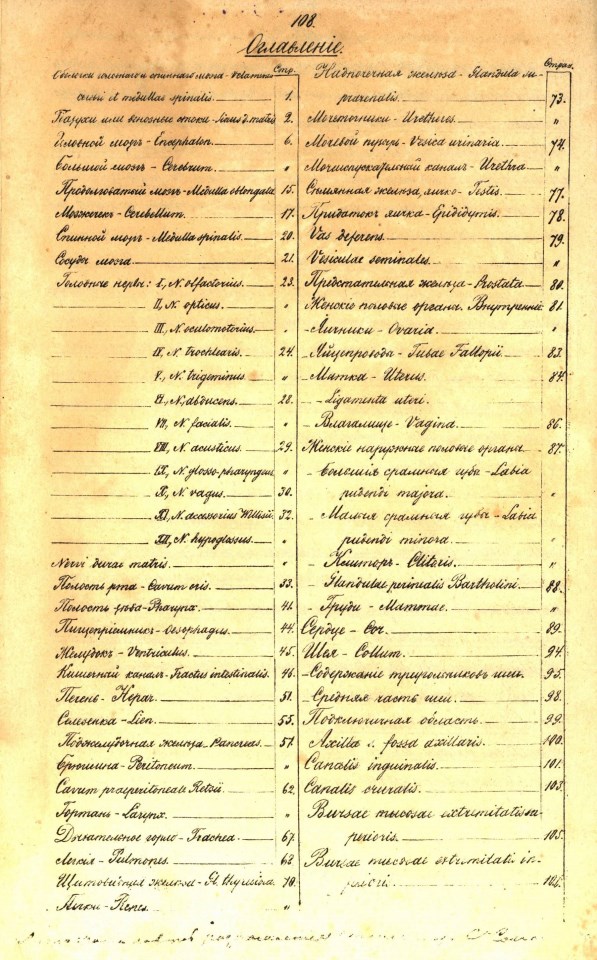 108.
Оглавленіе.
Стр.
Оболочки головного и спиннаго мозга - Velamenta
cerebri et medullae spinalis. 1.
Пазухи или венозные стоки - Sinus d. matris 2.
Головной мозгъ - Encephalon. 6.
Большой мозгъ - Cerebrum. "
Продолговатый мозгъ - Medulla oblongata 15.
Мозжечекъ - Cerebellum. 17.
Спинной мозгъ - Medulla spinalis. 20.
Сосуды мозга 21.
Головные нервы: I, N. olfactorius. 23.
II, N. opticus. "
III, N. oculomotorius. "
IV, N. trochlearis. 24.
V., N. trigeminus "
VI, N. abducens. 28.
VII, N. facialis. "
VIII, N. acusticus. 29.
IX, N. glosso-pharyngeus "
X, N. vagus. 30.
XI, N. accessorius Willisii. 32.
XII, N. hypoglossus. "
Nervi durae matris. "
Полость рта - Cavum oris. 33.
Полость зѣва - Pharynx. 41.
Пищепріемникъ - Oesophagus. 44.
Желудокъ - Ventriculus. 45.
Кишечный каналъ - Tractus intestinalis. 46.
Печень - Hepar. 51.
Селезенка - Lien. 55.
Поджелудочная железа - Pancreas. 57.
Брюшина - Peritoneum "
Cavum praeperitoneale Retzii. 62.
Гортань - Larynx. "
Дыхательное горло - Trachea. 67.
Легкія - Pulmones. 68.
Щитовидная железа - Gl. thyreoidea 70.
Почки - Renes. "
Стран.
Надпочечная железа - Glandula su-
prarenalis. 73.
Мочеточники - Uretheres. "
Мочевой пузырь - Vesica urinaria. 74.
Мочеиспускательный каналъ - Urethra "
Сѣмянная железа, яичко - Testis. 77.
Придатокъ яичка - Epididymis. 78.
Vas deferens. 79.
Vesiculae seminales. "
Предстательная железа - Prostata 80.
Женскіе половые органы. Внутренніе 81.
- Яичники - Ovaria. "
- Яйцепроводы - Tubae Fallopii. 83.
- Матка - Uterus. 84.
- Ligamenta uteri.
- Влагалище - Vagina. 86.
Женскіе наружные половые органы. 87.
- Большія срамныя губы - Labia
pudendi majora. "
- Малыя срамныя губы - Labia
pudendi minora. "
- Клиторъ - Clitoris. "
- Glandulae perinealis Bartholini. 88.
- Груди - Mammae. "
Сердце - Cor. 89.
Шея - Collum. 94.
- Содержаніе треугольниковъ шеи. 95.
- Средняя часть шеи. 98.
Подключичная область. 99.
Axilla s. fossa axillaris. 100.
Canalis inguinalis. 101.
Canalis cruralis. 103.
Bursae mucosae extremitatis su-
perioris. 105.
Bursae mucosae extremitatis in-
ferioris. 106.